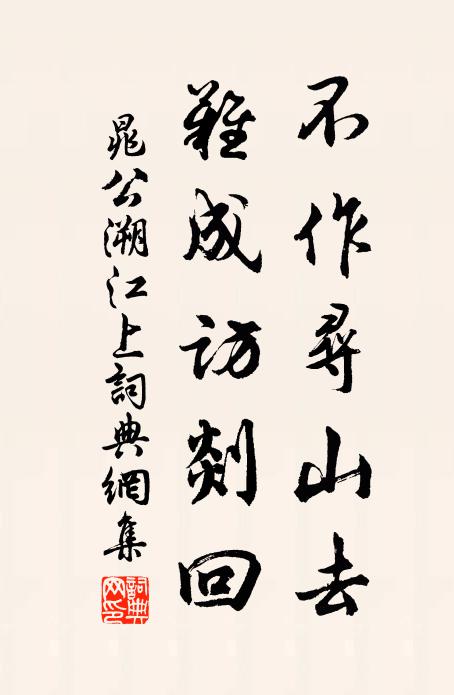 不作尋山去
難成訪剡回
晁公溯江上詞典網集
詞典
网印